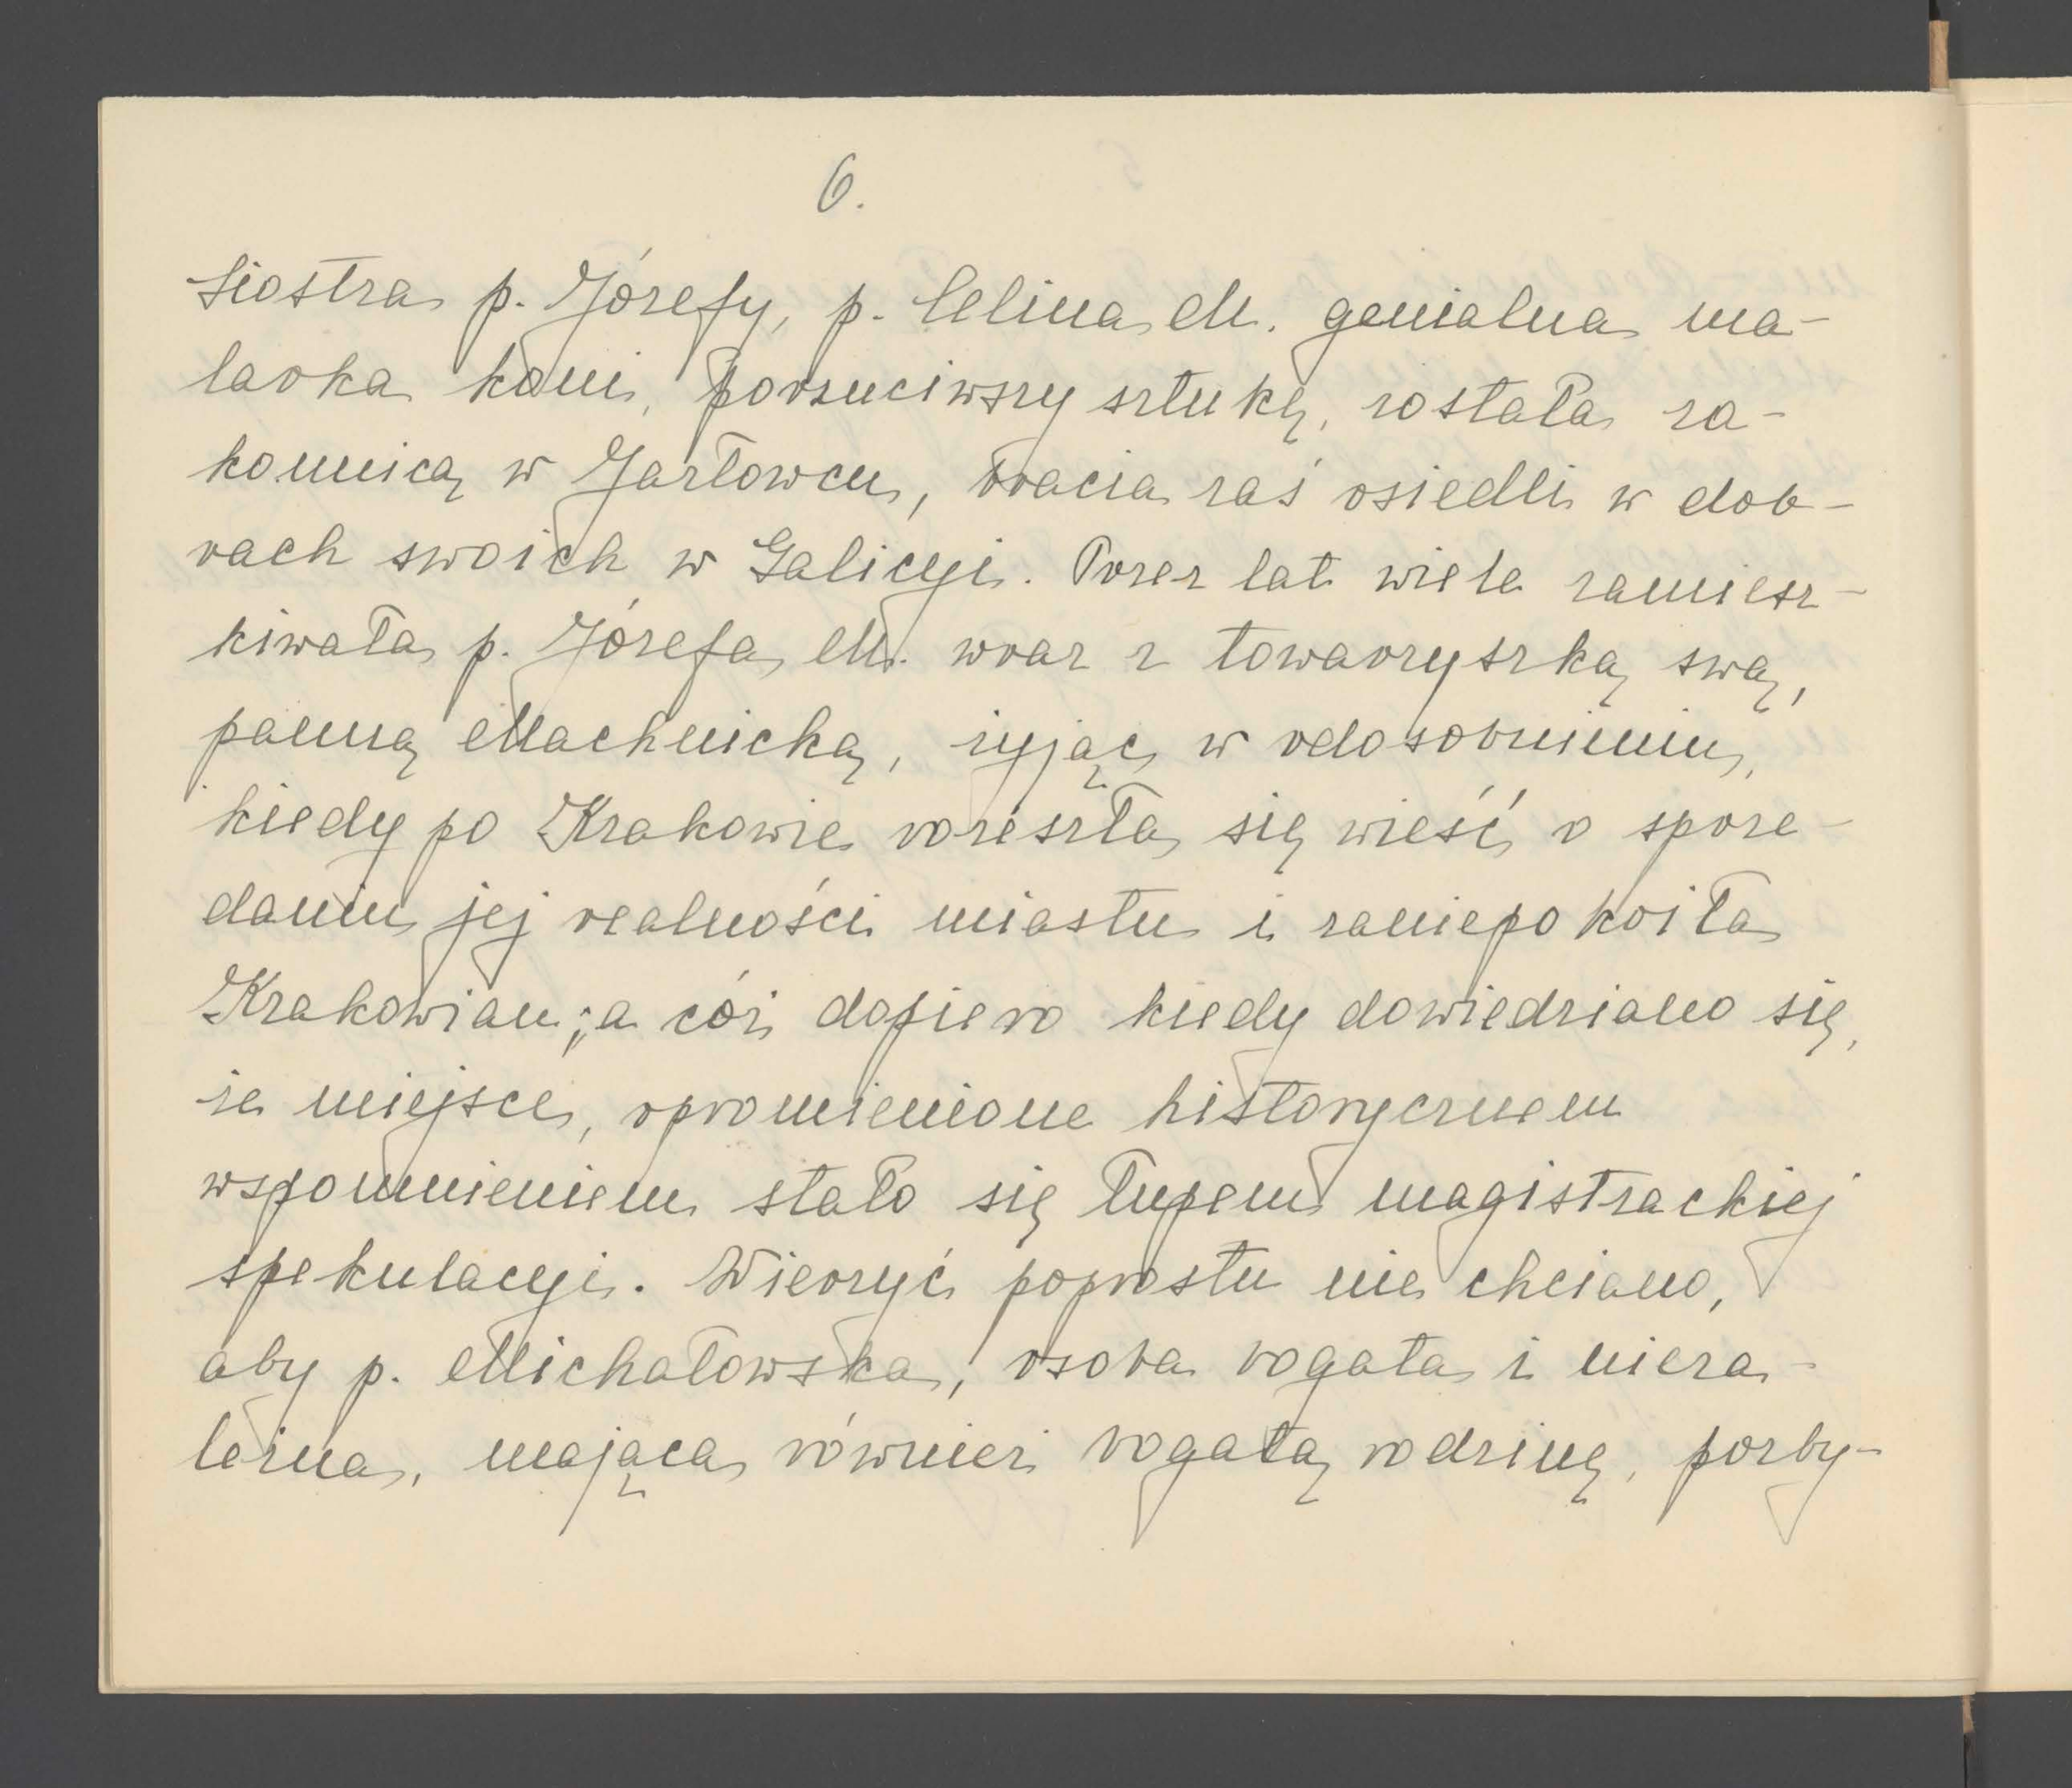 6.
Siostra p. Józefy, p. Celina M. genialna ma-
larka koni, porzuciwszy sztukę, została za-
konnicą w Jazłowcu, bracia zaś osiedli w dob-
rach swoich w Galicyi. Przez lat wiele zamiesz-
kiwała p. Józefa M. wraz z towarzyszką swą,
panną Machnicką, żyjąc w odosobnieniu,
kiedy po Krakowie rozeszła się wieść o sprze-
daniu jej realności miastu i zaniepokoiła
Krakowian; a cóż dopiero kiedy dowiedziano się,
że miejsce, opromienione historycznem
wspomnieniem stało się łupem magistrackiej
spekulacyi. Wierzyć poprostu nie chciano,
aby p. Michałowska, osoba bogata i nieza-
leżna, mająca również bogatą rodzinę, pozby-